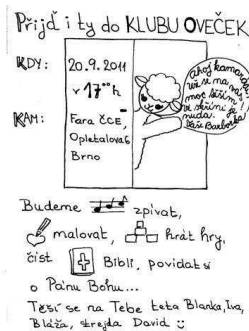 Přijď i ty do KLUBU OVEČEK
KDY:
20.9.2011
v 17⁰⁰ h
KAM:
Fara ČCE,
Opletalova 6
Brno
Ahoj kamarádi
Už se na vás
moc těším!
Ve skříni je
nuda.
Vaše Barborka
Budeme zpívat,
malovat, hrát hry,
číst Bibli, povídat si
o Pánu Bohu...
Těší se na Tebe teta Blanka, Iva,
Bláža, strejda David